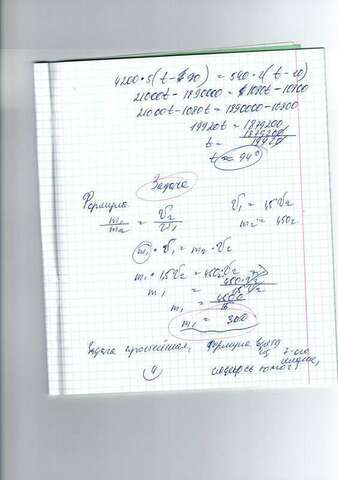 4200·5(t-90) = 540·2(t-10)
21000t - 1890000 = 1080t - 10800
21000t - 1080t = 1890000 - 10800
19920t = 1879200
t = 1879200/19920
t ≈ 94°
Задача
Формула
m₁/m₂ = V₂/V₁
V₁ = 1,5V₂
m₂ = 450г
m₁·V₁ = m₂·V₂
m₁·1,5V₂ = 450·V₂
m₁ = 450·V₂/
m₁ = 4500/15
m₁ = 300
Задача простейшая, формула взята
из 7-ого